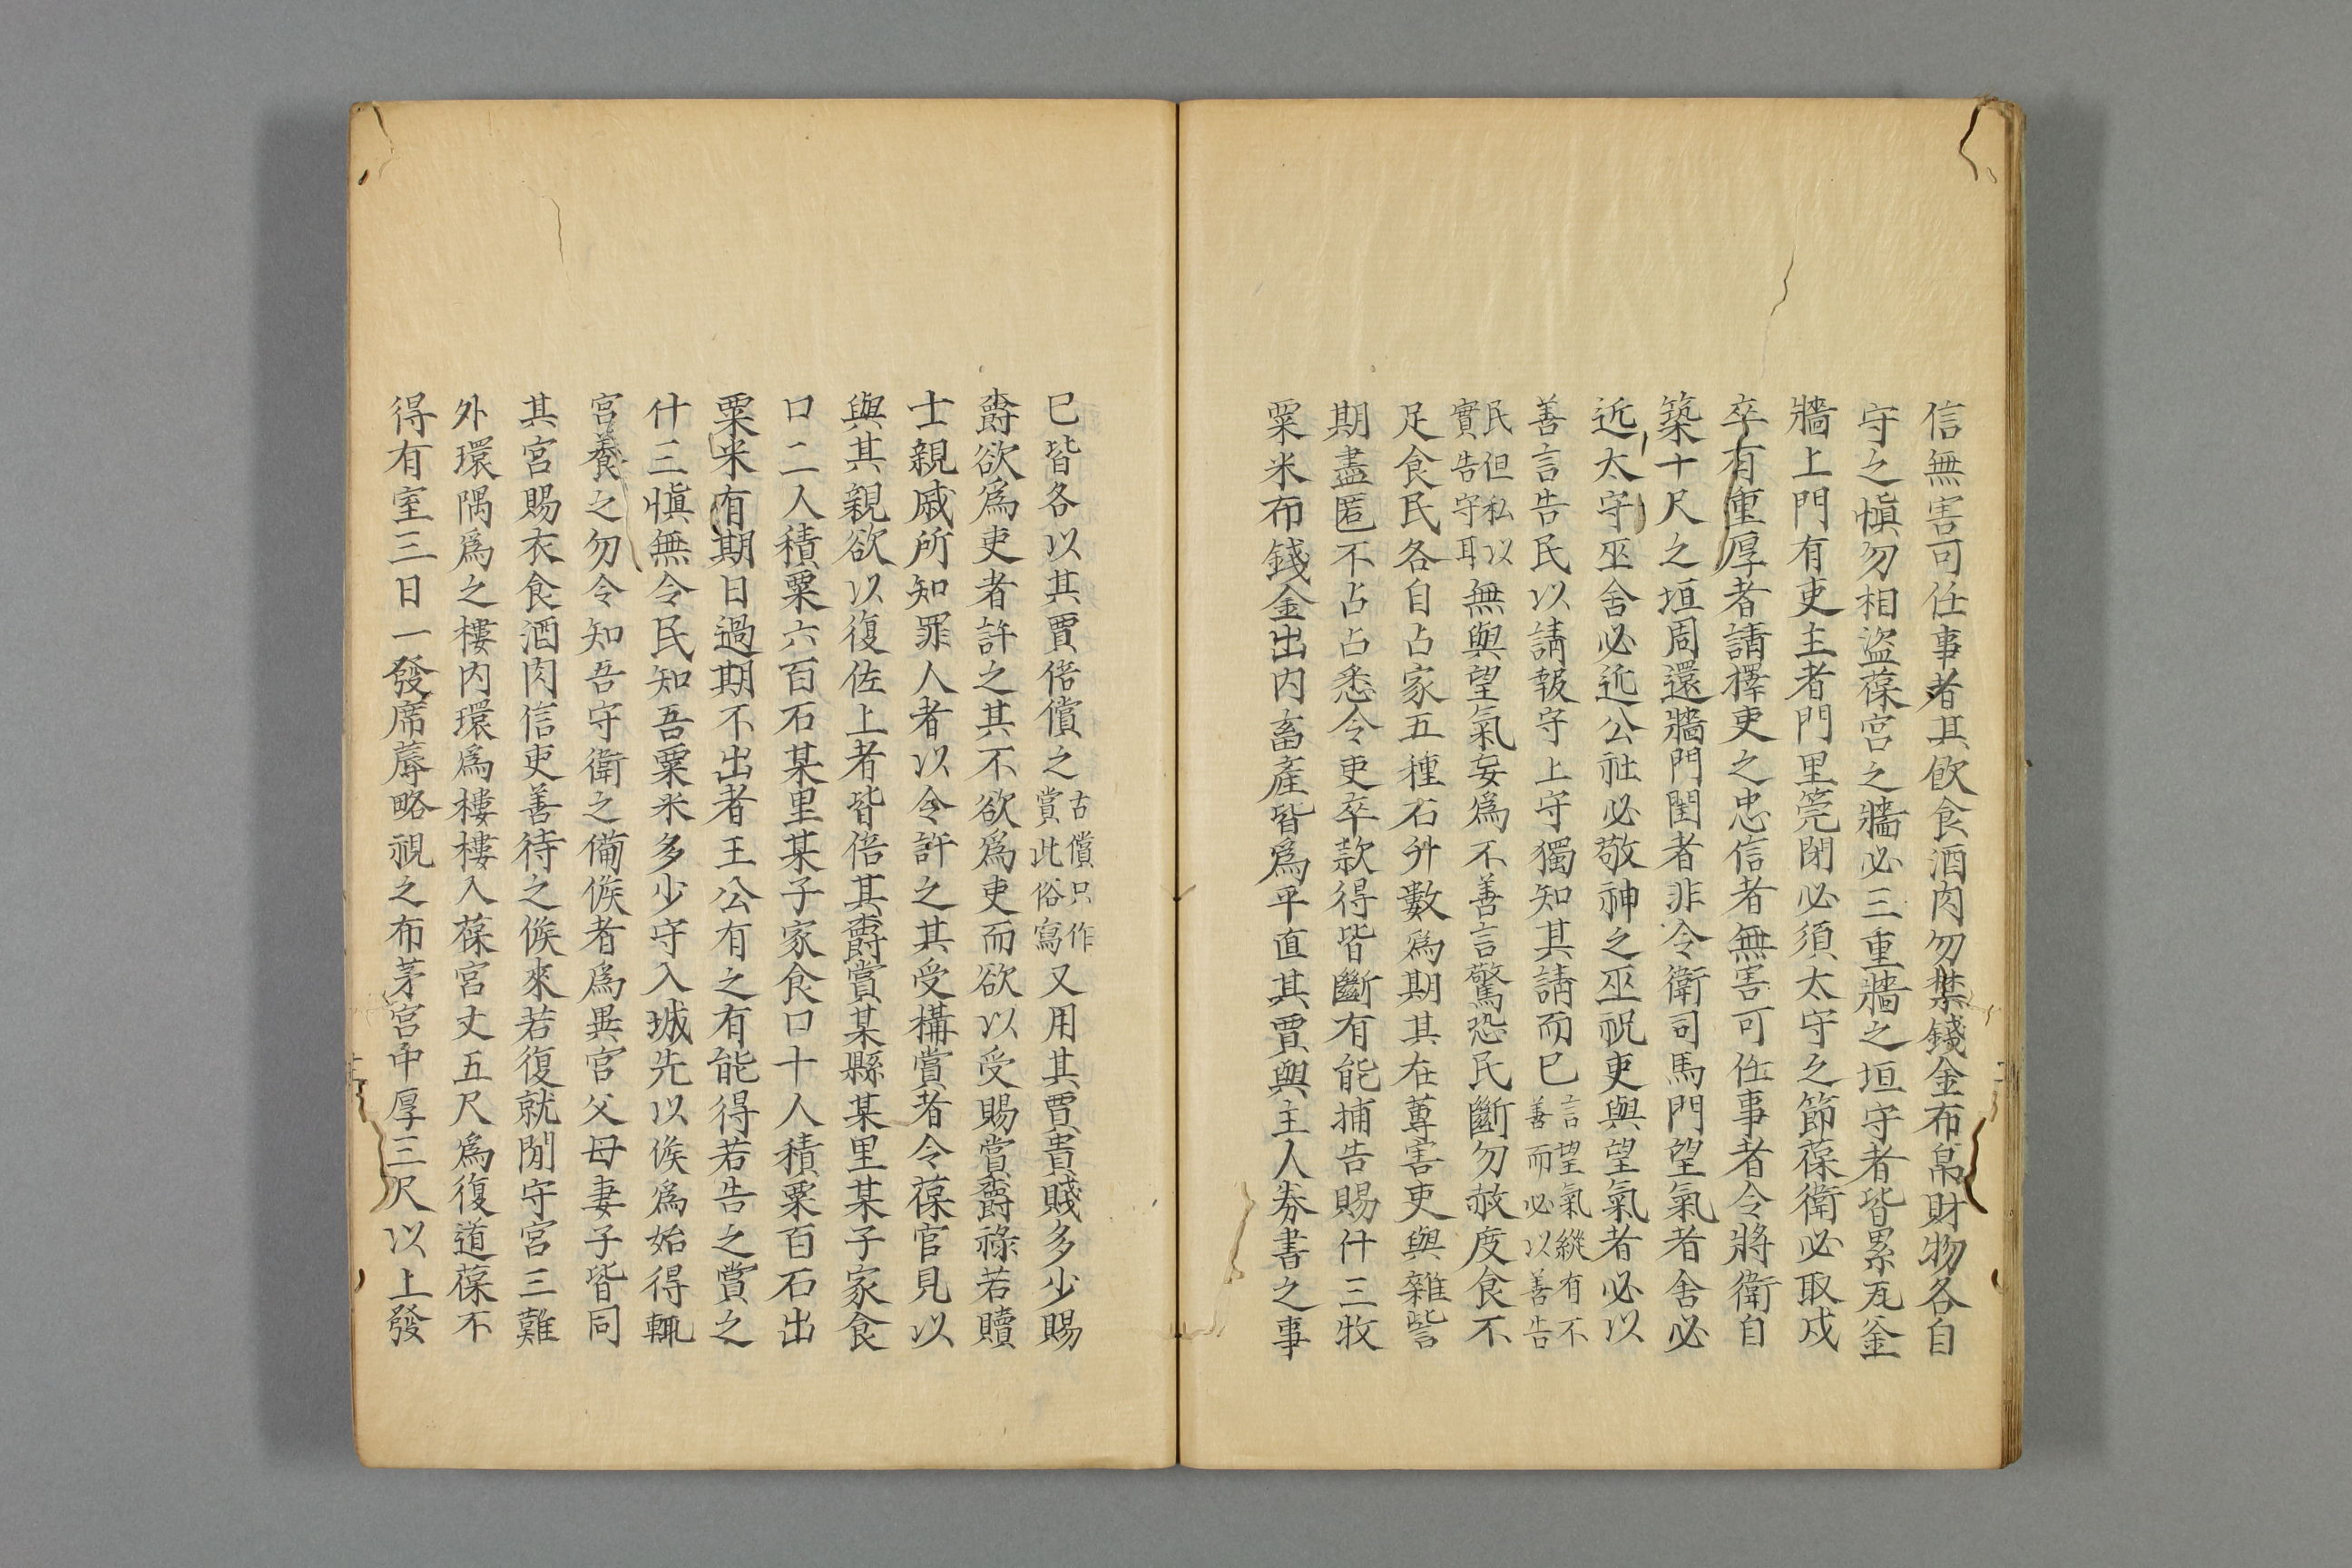 信無害可任事者其飲食酒肉勿禁錢金布帛財物各自
守之愼勿相盜葆宮之牆必三重牆之垣守者皆累瓦釜
牆上門有吏主者門里筦閉必須太守之節葆衛必取戍
卒有重厚者請擇吏之忠信者無害可任事者令將衛自
築十尺之垣周還牆門閨者非令衛司馬門望氣者舍必
近太守巫舍必近公社必敬神之巫祝吏與望氣者必以
善言告民以請報守上守獨知其請而已言望氣縱有不善而必以善告
民但私以實告守耳無與望氣妄爲不善言驚恐民斷勿赦度食不
足食民各自占家五種石升數爲期其在蓴害吏與雜訾
期盡匿不占占悉令吏卒款得皆斷有能捕告賜什三牧
粟米布錢金出内畜產皆爲平直其賈與主人券書之事
已皆各以其賈倍償之古償只作賞此俗寫又用其賈貴賤多少賜
爵欲爲吏者許之其不欲爲吏而欲以受賜賞爵祿若贖
士親戚所知罪人者以令許之其受構賞者令葆官見以
與其親欲以復佐上者皆倍其爵賞某縣某里某子家食
口二人積粟六百石某里某子家食口十人積粟百石出
粟米有期日過期不出者王公有之有能得若告之賞之
什三愼無令民知吾粟米多少守入城先以𠊱爲始得輒
宮養之勿令知吾守衛之備𠊱者爲異宮父母妻子皆同
其宮賜衣食酒肉信吏善待之𠊱來若復就閒守宮三難
外環隅爲之樓内環爲樓樓入葆宮丈五尺爲復道葆不
得有室三日一發席蓐略視之布茅宮中厚三尺以上發